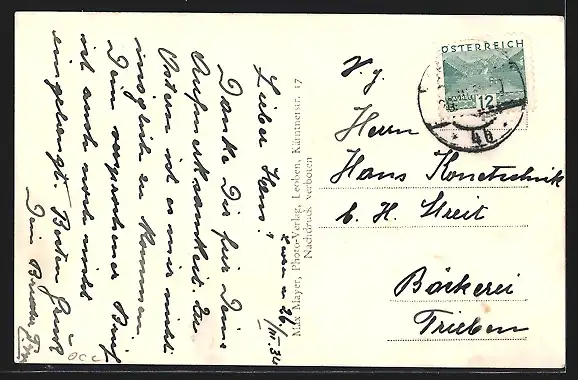 Leoben am 26/III. 34
Lieber Hans!
Danke Dir für Deine
Aufmerksamkeit. Zu
Ostern ist es mir nicht
möglich zu kommen.
Dein versprochener Brief
ist auch noch nicht
eingelangt. Besten Gruß
Dein Bruder
Max Mayer, Photo-Verlag, Leoben, Kärntnerstr. 17
Nachdruck verboten
ÖSTERREICH
12
* 4b *
Herrn
Hans Konetschnik
b. H. Streit
Bäckerei
Trieben